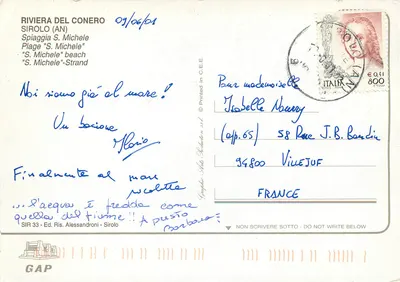 RIVIERA DEL CONERO
SIROLO (AN)
Spiaggia S. Michele
Plage "S. Michele"
"S. Michele" beach
"S. Michele"-Strand
09/06/01
Noi siamo già al mare!
Un bacione
Ilario
Finalmente al mare
Nicoletta
...l'acqua è fredda come
quella del fiume!! A presto
Barbara
SIR 33 - Ed. Ris. Alessandroni - Sirolo
GAP
€ 0,41
800
ITALIA
Pour mademoiselle
Isabelle
(app. 65) 58 Rue J.B.
94800 VILLEJUIF
FRANCE
NON SCRIVERE SOTTO - DO NOT WRITE BELOW